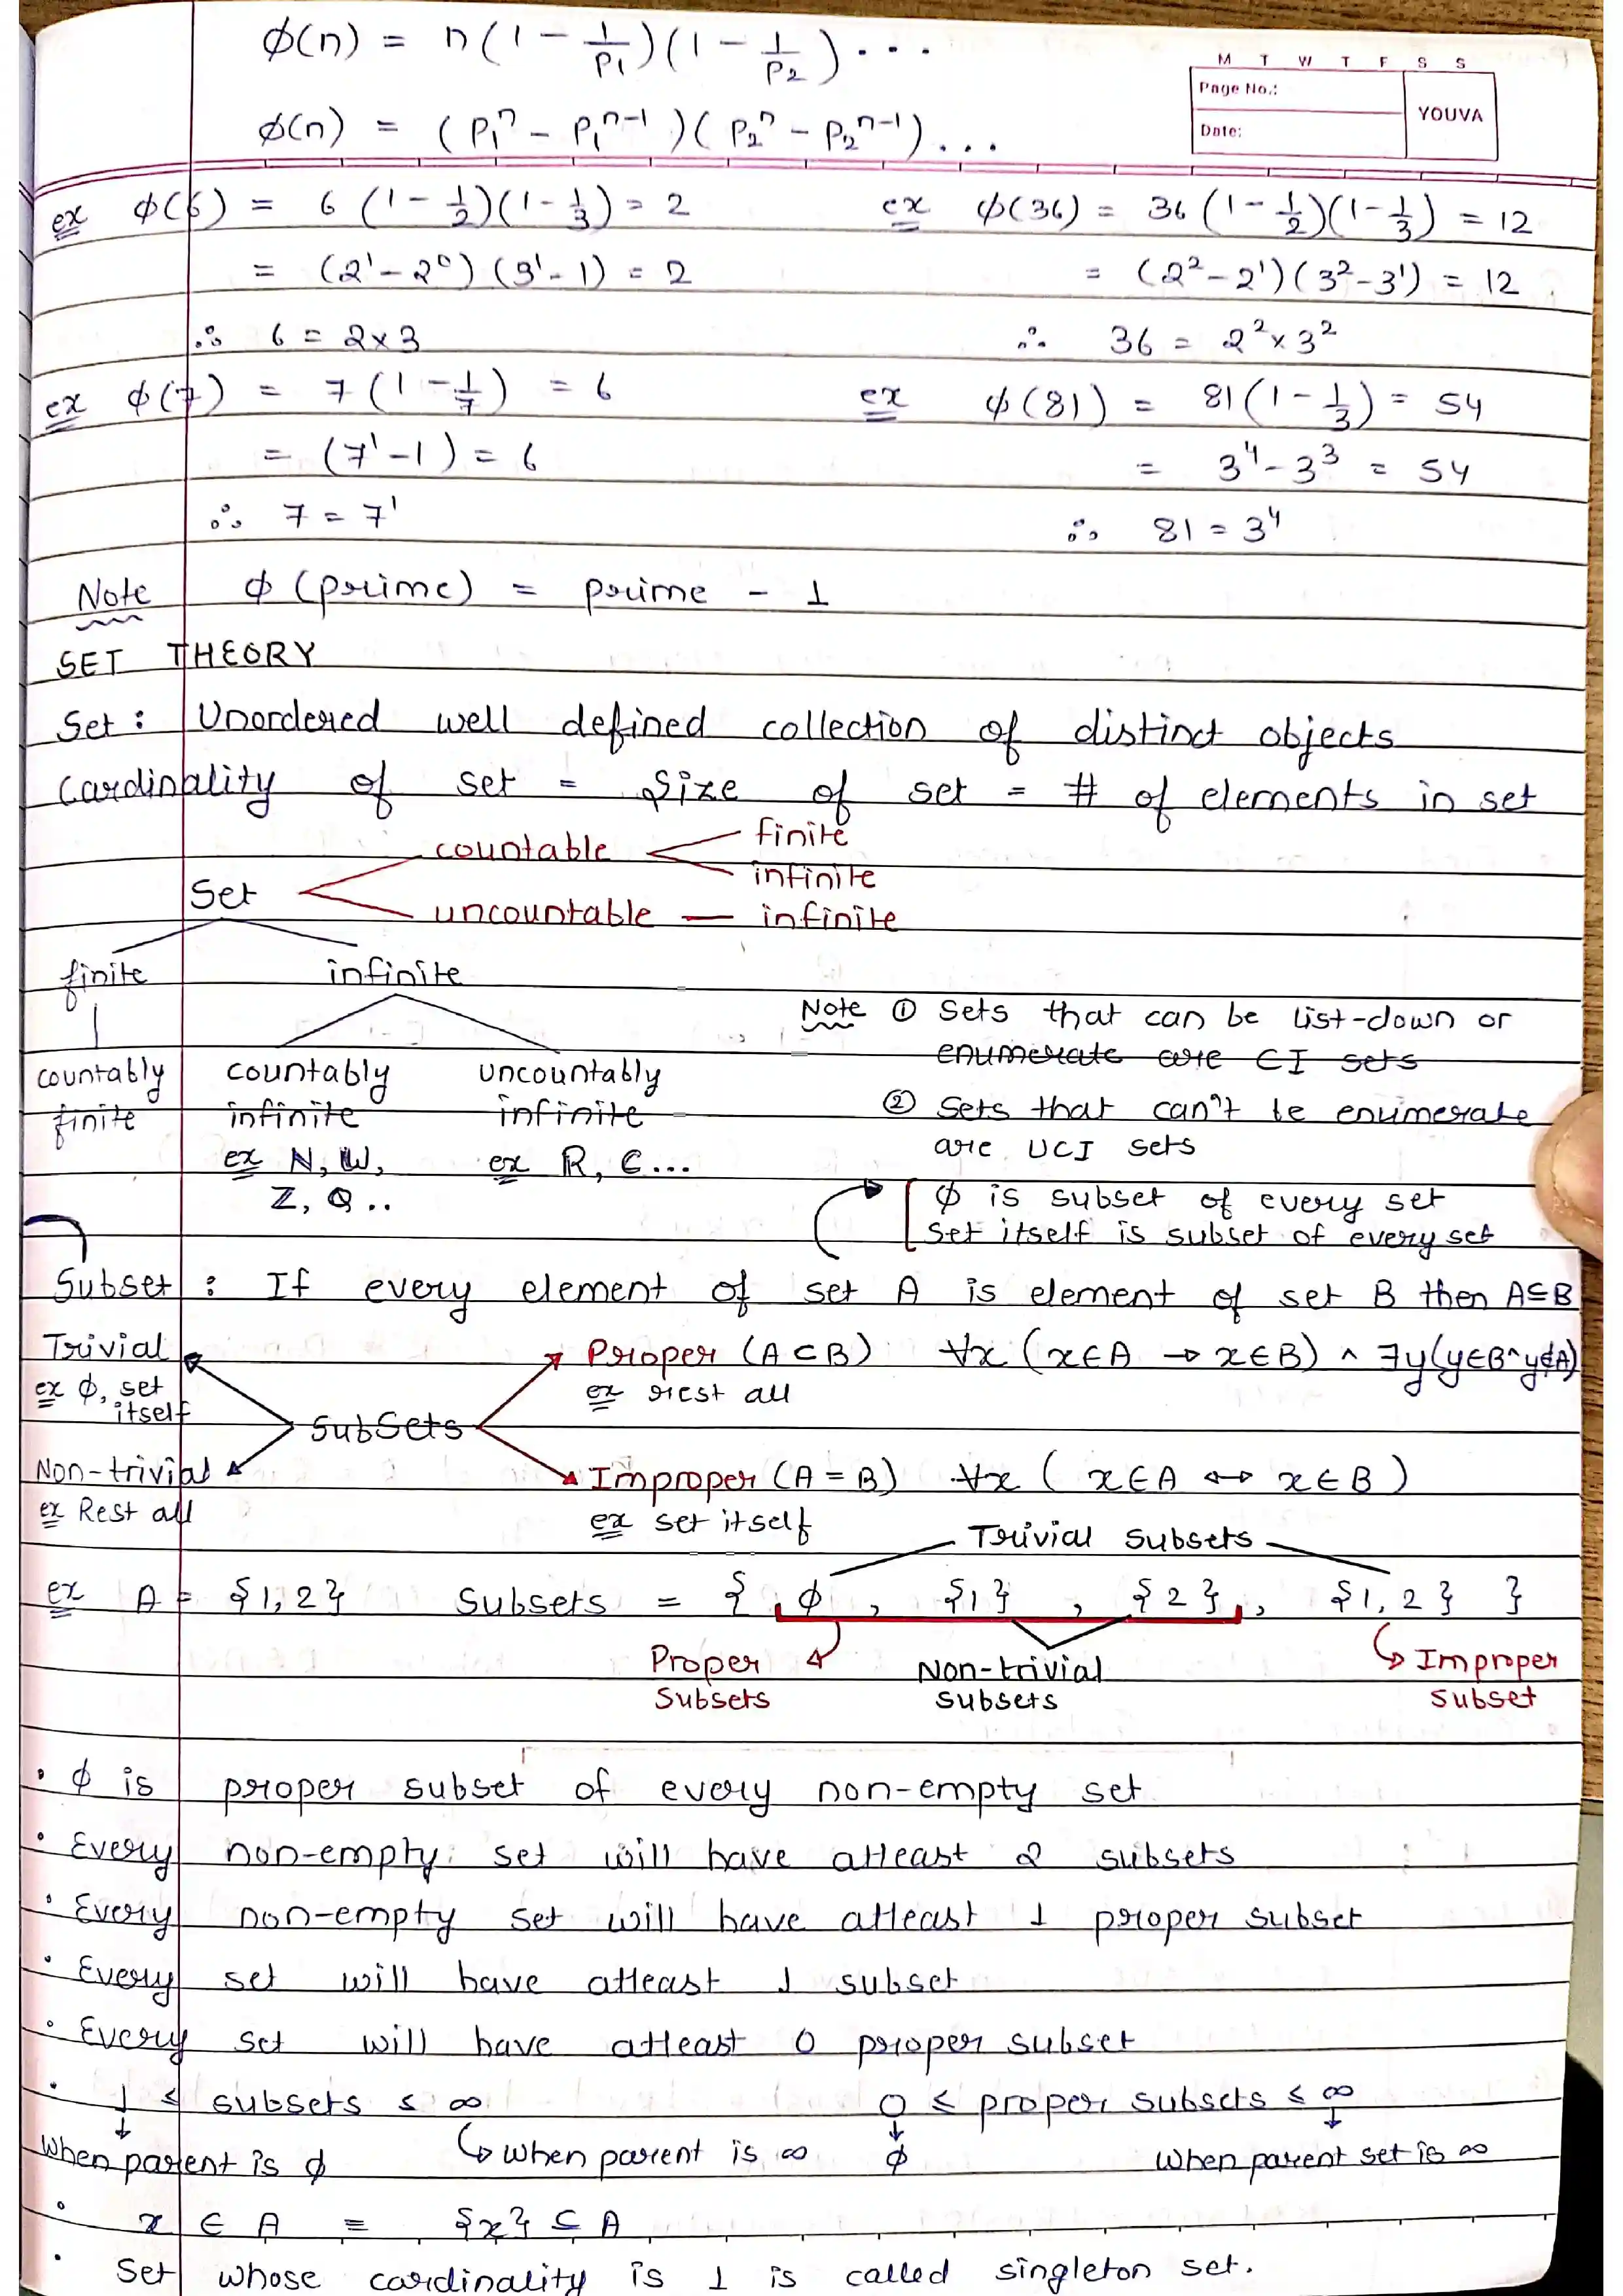 ϕ(n) = n(1 - 1/P₁)(1 - 1/P₂) ...
M T W T F S S
Page No.:
YOUVA
Date:
ϕ(n) = (P₁ⁿ - P₁ⁿ⁻¹)(P₂ⁿ - P₂ⁿ⁻¹)...
ex ϕ(6) = 6 (1 - 1/2)(1 - 1/3) = 2
= (2¹ - 2⁰) (3¹ - 1) = 2
∴ 6 = 2×3
ex ϕ(36) = 36 (1 - 1/2)(1 - 1/3) = 12
= (2² - 2¹)(3² - 3¹) = 12
∴ 36 = 2² × 3²
ex ϕ(7) = 7 (1 - 1/7) = 6
= (7¹ - 1) = 6
∴ 7 = 7¹
ex ϕ(81) = 81(1 - 1/3) = 54
= 3⁴ - 3³ = 54
∴ 81 = 3⁴
Note ϕ (prime) = prime - 1
SET THEORY
Set : Unordered well defined collection of distinct objects
Cardinality of set = Size of set = # of elements in set
Set
countable
finite
infinite
uncountable — infinite
finite
infinite
countably finite
countably infinite
ex N, W,
Z, Q ..
uncountably infinite
ex R, C...
Note ① Sets that can be list-down or
enumerate are CI sets
② Sets that can't be enumerate
are UCI sets
ϕ is subset of every set
Set itself is subset of every set
Subset : If every element of set A is element of set B then A⊆B
Trivial
ex ϕ, set
itself
Non-trivial
ex Rest all
Subsets
Proper (A⊂B) ∀x (x∈A → x∈B) ^ ∃y(y∈B^y∉A)
ex rest all
Improper (A = B) ∀x ( x∈A ↔ x∈B )
ex set itself
Trivial subsets
ex A = {1,2} Subsets = { ϕ , {1} , {2} , {1,2} }
Proper
Subsets
Non-trivial
subsets
Improper
subset
• ϕ is proper subset of every non-empty set
• Every non-empty set will have atleast 2 subsets
• Every non-empty set will have atleast 1 proper subset
• Every set will have atleast 1 subset
• Every set will have atleast 0 proper subset
• 1 ≤ subsets ≤ ∞ 0 ≤ proper subsets ≤ ∞
When parent is ϕ
When parent is ∞
ϕ
When parent set is ∞
• x ∈ A ≡ {x} ⊆ A
• Set whose cardinality is 1 is called singleton set.